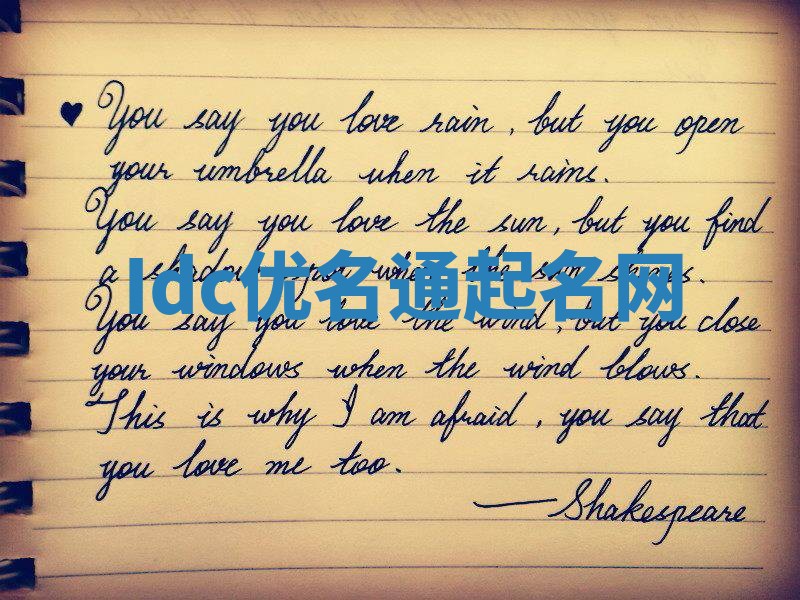 ♥ You say you love rain, but you open
your umbrella when it rains.
You say you love the sun, but you find
a shadow spot when the sun shines.
Idc优名通起名网
You say you love the wind, but you close
your windows when the wind blows.
This is why I am afraid, you say that
you love me too.
—Shakespeare